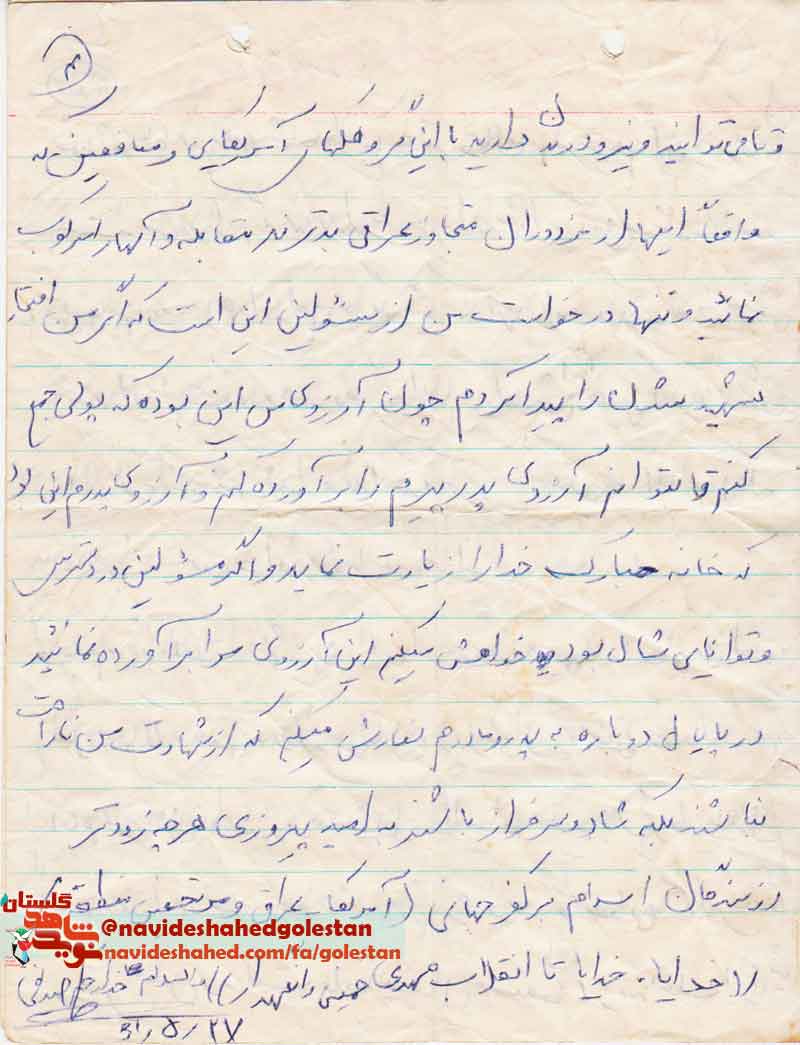 ۴
و تا می‌توانید و نیرو در بدن دارید با این گروهکهای آمریکایی و منافقین که
واقعاً اینها از مزدوران متجاوز عراقی بدترند مقابله و آنها را سرکوب
نمائید و تنها درخواست من از مسئولین این است که اگر من افتخار
شهید شدن را پیدا کردم چون آرزوی من این بوده که پولی جمع
کنم تا بتوانم آرزوی پدر پیرم را برآورده کنم و آرزوی پدرم این بود
که خانه مبارک خدا را زیارت نماید و اگر مسئولین در دسترس
و توانایی شان بود خواهش میکنم این آرزوی مرا برآورده نمائید
در پایان دوباره به پدر و مادرم سفارش میکنم که از شهادت من ناراحت
نباشند بلکه شاد و سرفراز باشند به امید پیروزی هر چه زودتر
رزمندگان اسلام بر کفر جهانی (آمریکا، عراق و مرتجعین منطقه
((خدایا، خدایا تا انقلاب مهدی خمینی را نگهدار)) والسلام
۶۱/۵/۲۷
گلستان
نوید شاهد
@navideshahedgolestan
navideshahed.com/fa/golestan